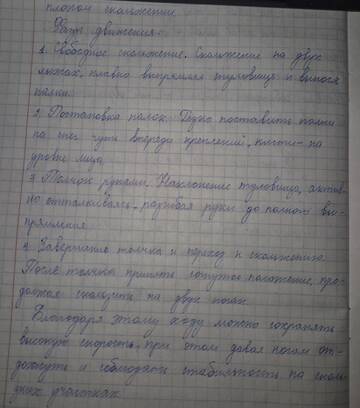 плохом скольжении.
Фазы движения:
1. Свободное скольжение. Скольжение на двух
лыжах, плавно выпрямляя туловище и вынося
палки.
2. Постановка палок. Нужно поставить палки
на снег чуть впереди креплений, кисти - на
уровне лица.
3. Толчок руками. Наклонение туловища, актив-
но отталкиваясь, разгибая руки до полного вы-
прямления.
4. Завершение толчка и переход к скольжению.
После толчка принять согнутое положение, про-
должая скользить на двух ногах.
Благодаря этому ходу можно сохранять
высокую скорость, при этом давая ногам от-
дохнуть и соблюдать стабильность на сколь-
зких участках.